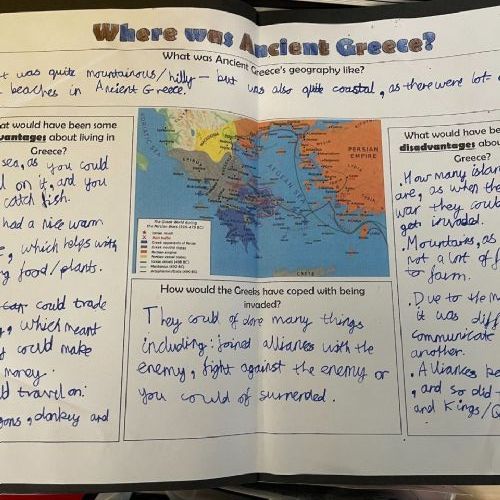 Where was Ancient Greece?
What was Ancient Greece's geography like?
t was quite mountainous/hilly - but was also quite coastal, as there were lot
beaches in Ancient Greece.
at would have been some
vantages about living in
Greece?
sea, as you could
on it, and you
catch fish.
had a nice warm
, which helps with
ng food/plants.
could trade
, which meant
could make
money.
ld travel on:
gons, donkey and
ADRIATIC SEA
EPIRUS
AEGEAN SEA
PERSIAN
EMPIRE
CRETE
The Greek World during
the Persian Wars (500-479 BC)
How would the Greeks have coped with being
invaded?
They could of done many things
including: joined alliances with the
enemy, fight against the enemy or
you could of surrended.
What would have be
disadvantages abou
Greece?
. How many islan
are, as when the
war they coul
get invaded.
. Mountains, as
not a lot of f
to farm.
. Due to the m
it was diff
communicate
another.
. Alliances be
, and so did
and Kings/Q